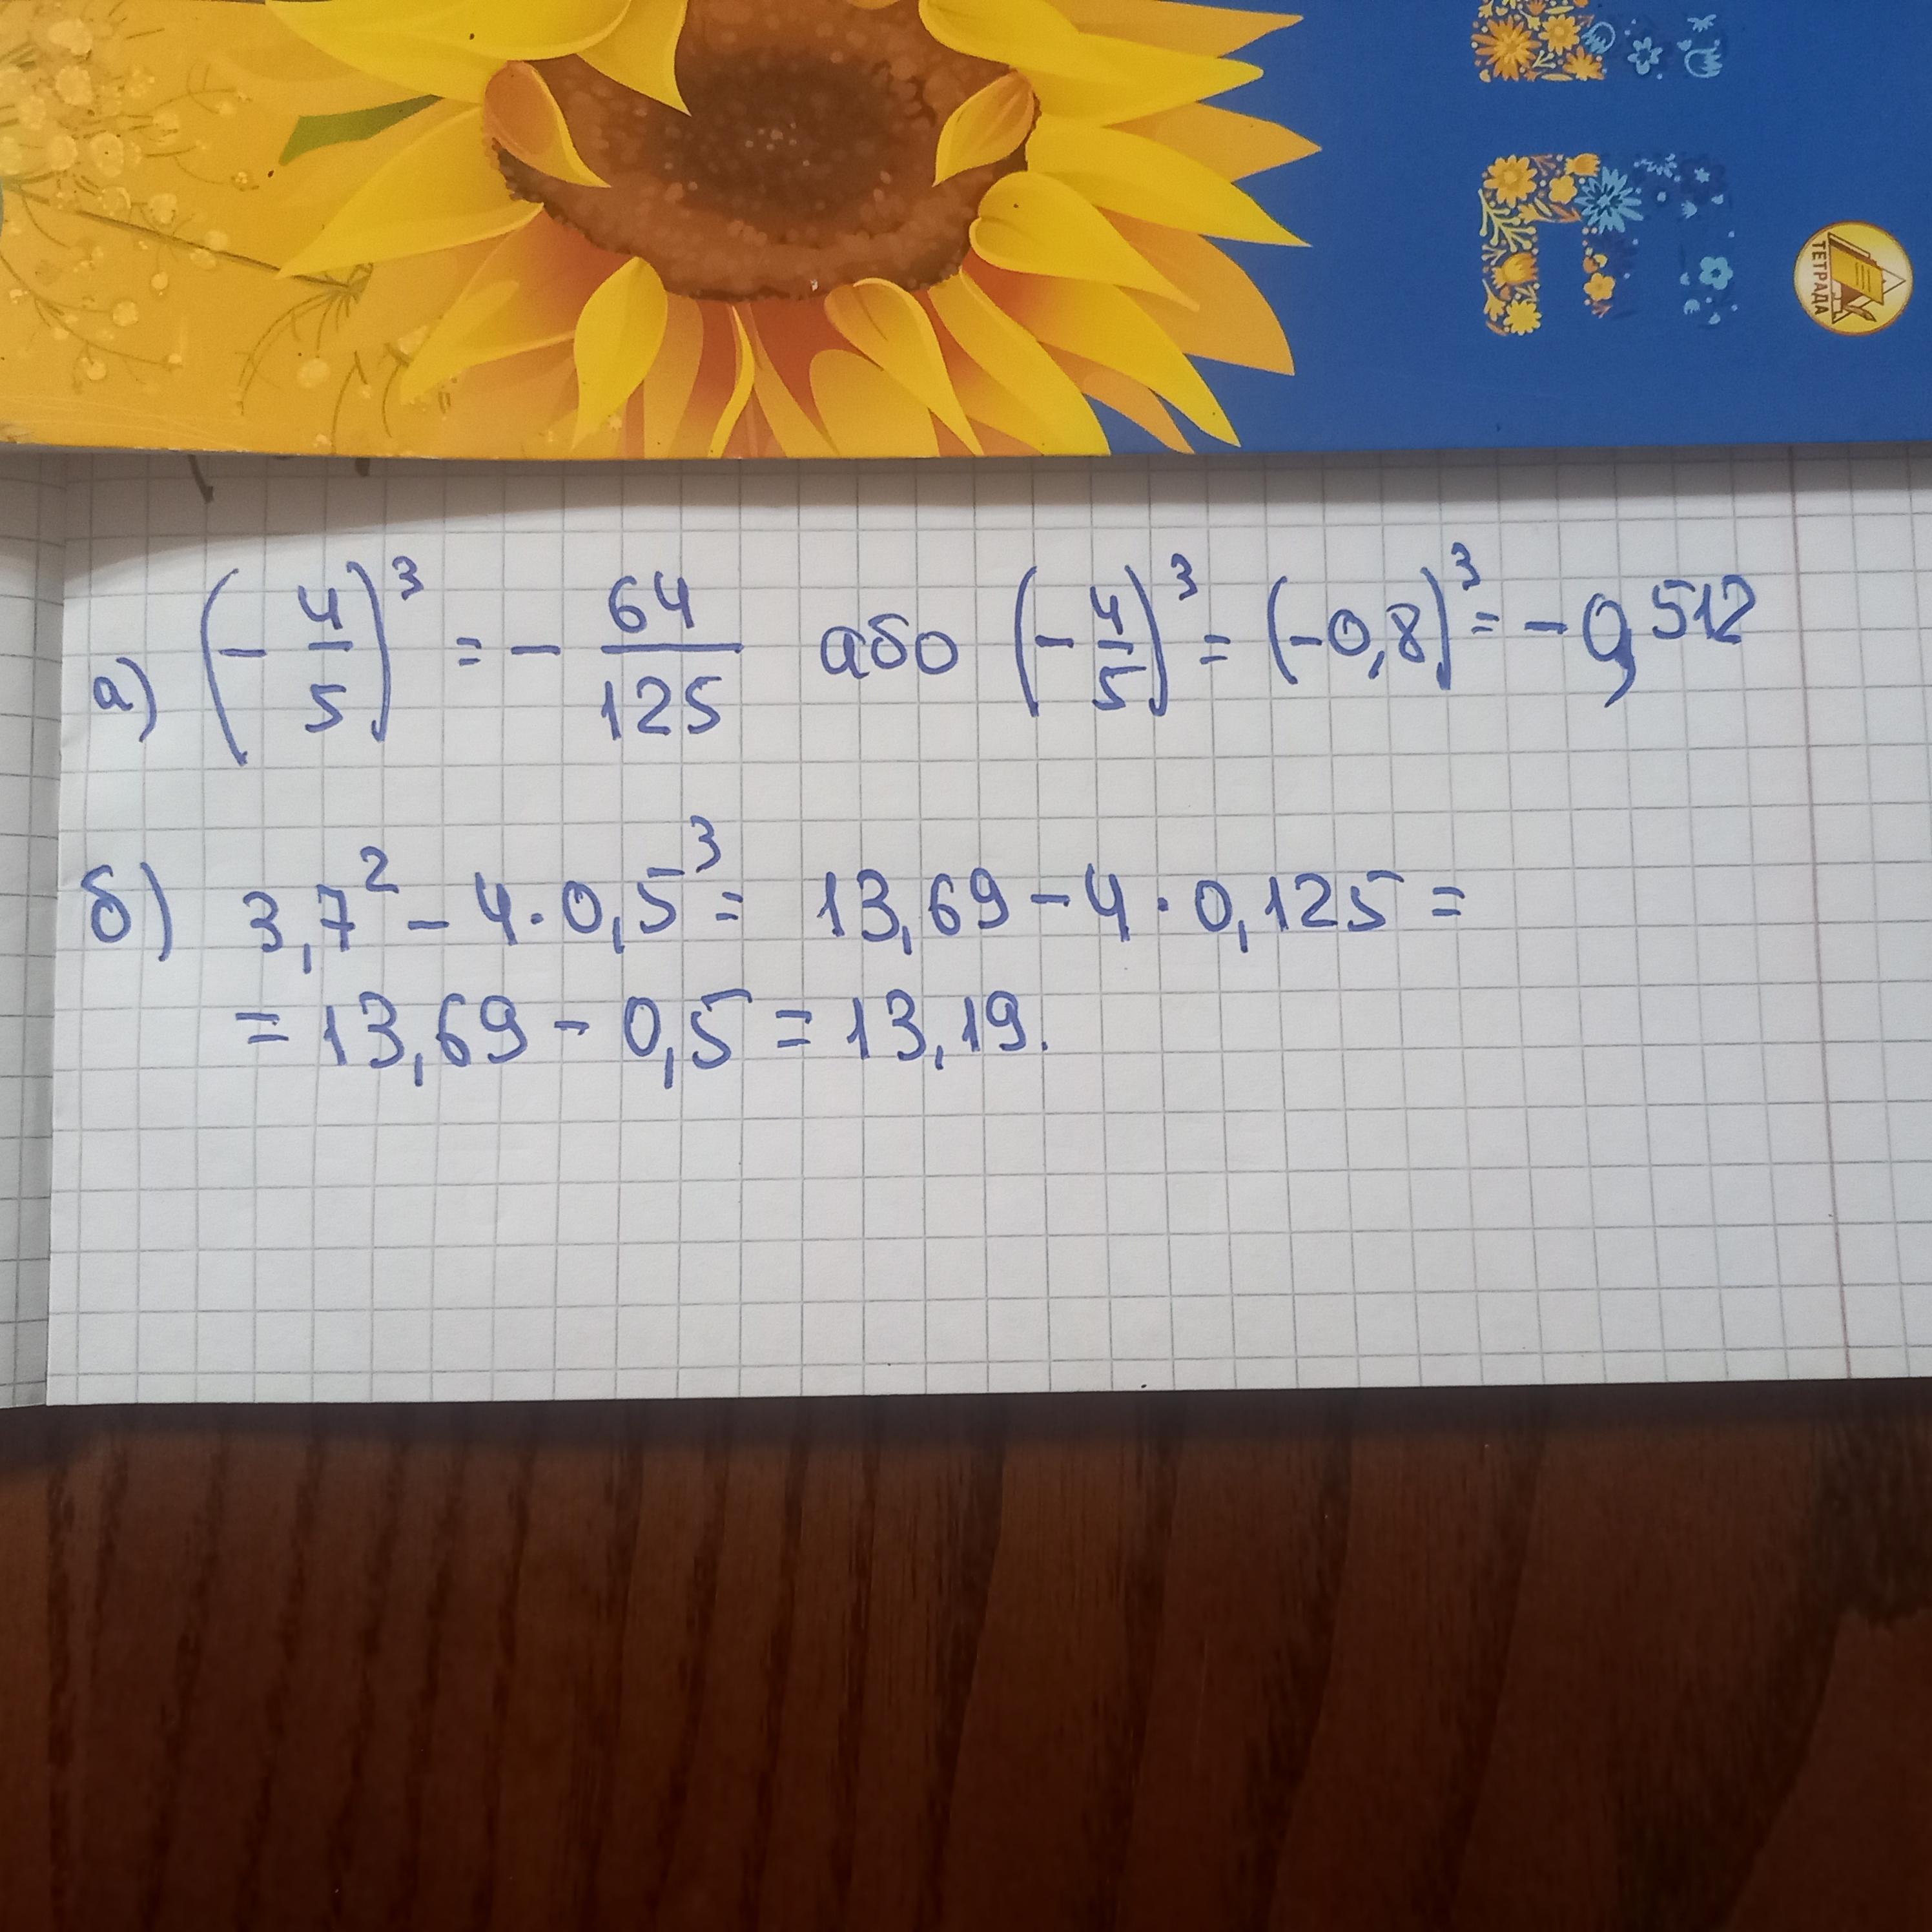 ТЕТРАДА
а) (-4/5)³ = - 64/125 або (-4/5)³ = (-0,8)³ = -0,512
б) 3,7² - 4·0,5³ = 13,69 - 4·0,125 =
= 13,69 - 0,5 = 13,19.